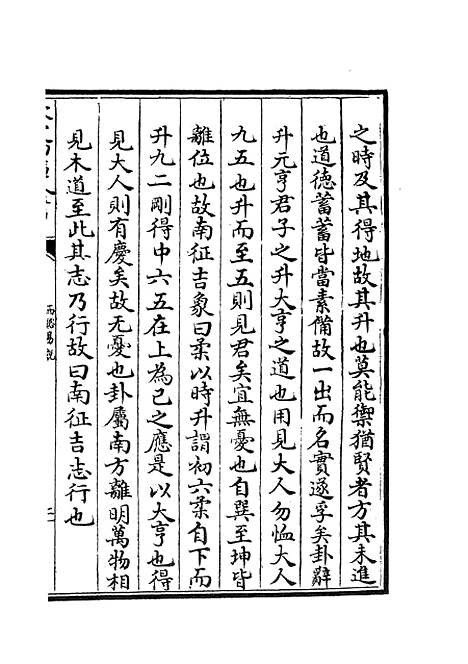 之時及其得地故其升也莫能禦猶賢者方其未進
也道德蓄蓄皆當素備故一出而名實遂孚矣卦辭
升元亨君子之升大亨之道也用見大人勿恤大人
九五也升而至五則見君矣宜無憂也自巽至坤皆
離位也故南征吉象曰柔以時升謂初六柔自下而
升九二剛得中六五在上為已之應是以大亨也得
見大人則有慶矣故无憂也卦屬南方離明萬物相
見木道至此其志乃行故曰南征吉志行也
易說